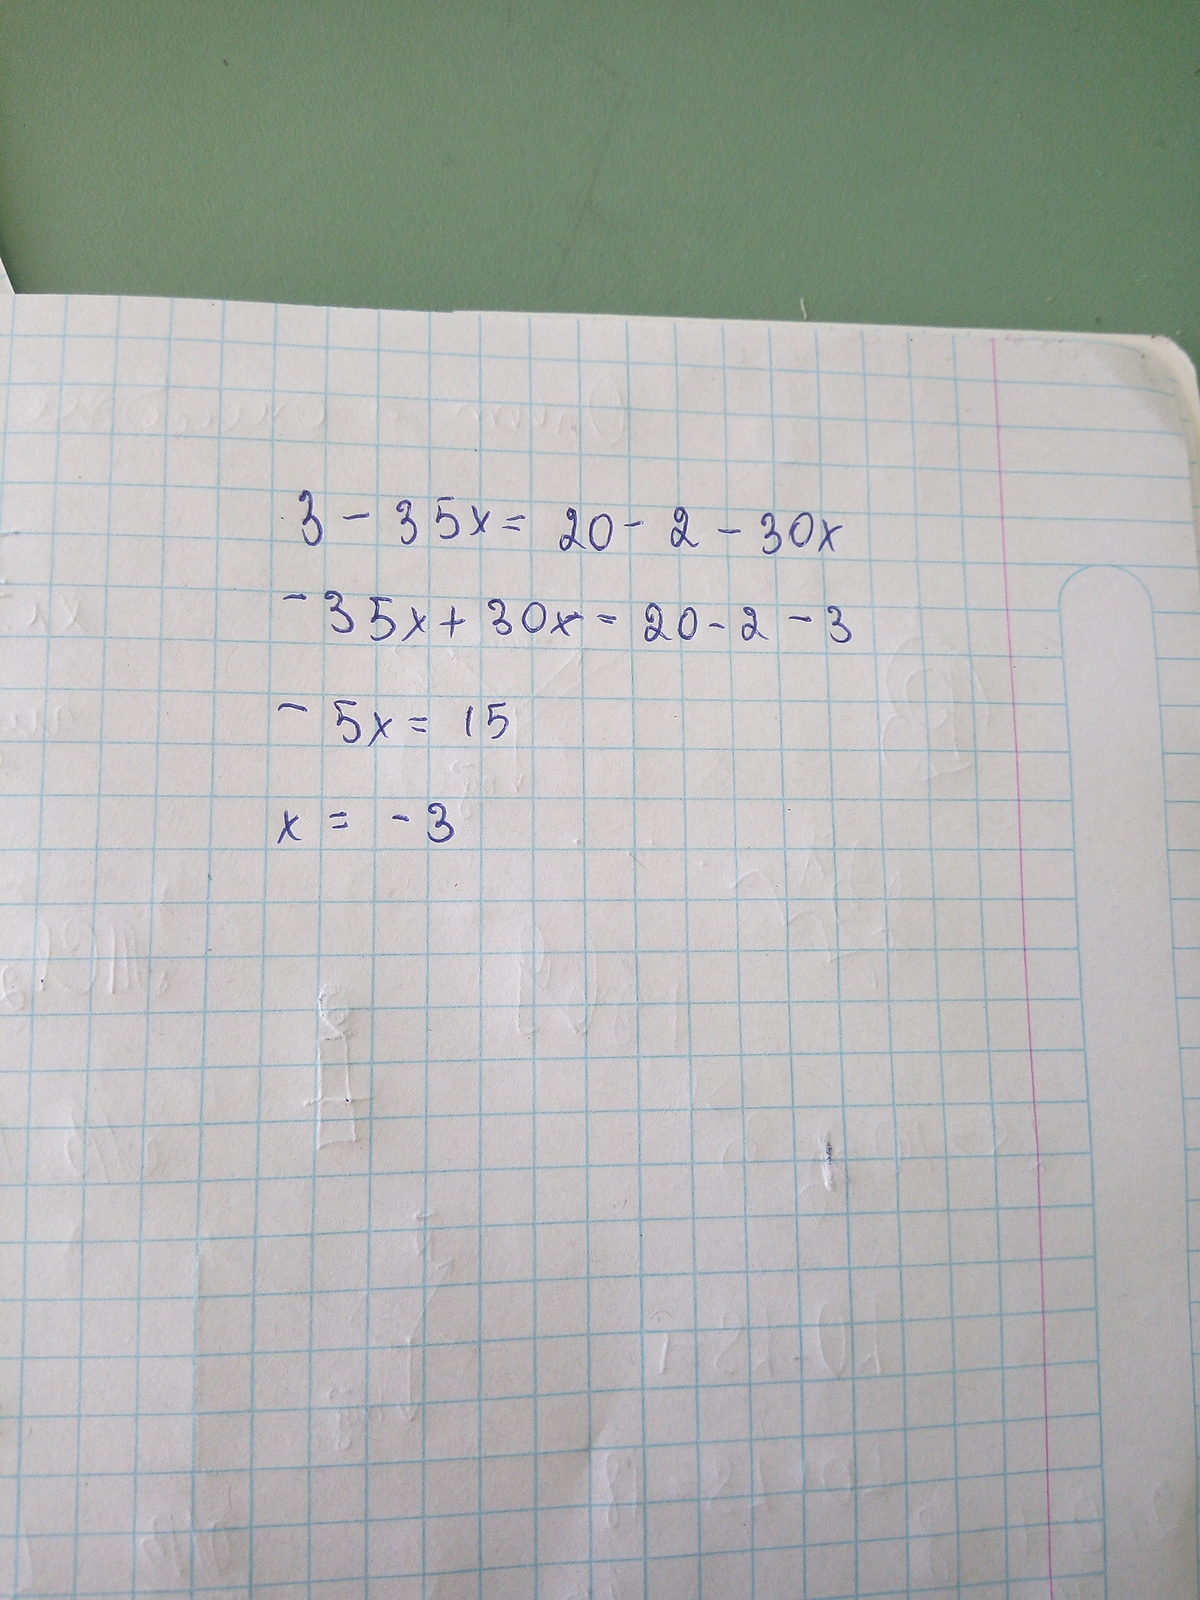 3 - 35x = 20 - 2 - 30x
- 35x + 30x = 20 - 2 - 3
- 5x = 15
x = - 3